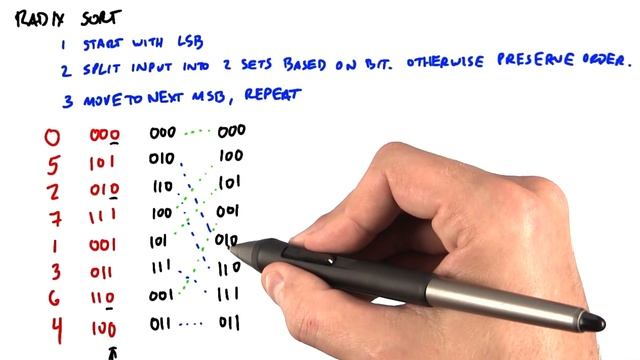 RADIX SORT
1 START WITH LSB
2 SPLIT INPUT INTO 2 SETS BASED ON BIT. OTHERWISE PRESERVE ORDER.
3 MOVE TO NEXT MSB, REPEAT
0 000 000 000
5 101 010 100
2 010 110 101
7 111 100 001
1 001 101 010
3 011 111 110
6 110 001 111
4 100 011 011